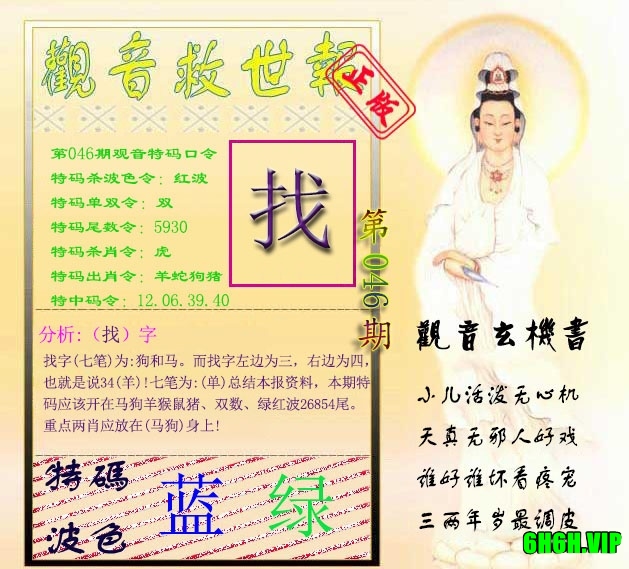 觀音救世報
正版
第046期观音特码口令
特码杀波色令: 红波
特码单双令: 双
特码尾数令: 5930
特码杀肖令: 虎
特码出肖令: 羊蛇狗猪
特中码令: 12.06.39.40
找
第046期
分析:（找）字
找字(七笔)为:狗和马。而找字左边为三，右边为四，
也就是说34(羊)!七笔为:(单)总结本报资料，本期特
码应该开在马狗羊猴鼠猪、双数、绿红波26854尾。
重点两肖应放在(马狗)身上!
特碼
波色
蓝 绿
觀音玄機書
小儿活泼无心机
天真无邪人好戏
谁好谁坏看疼宠
三两年岁最调皮
6H6H.VIP